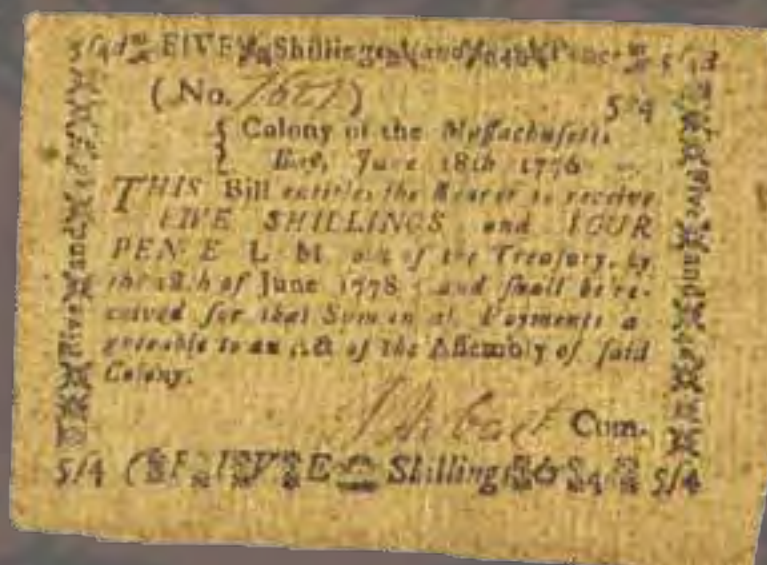 5/4d FIVE Shillings and 4 Pence 5/4d
(No. ) 5/4
Colony of the Maſſachuſetts
Bay, June 18th 1776
THIS Bill entitles the Bearer to receive
FIVE SHILLINGS and FOUR
PEN E L. M. out of the Treaſury, by
the 18th of June 1778 and ſhall be re-
ceived for that Sum in all Payments a
greeable to an Act of the Aſſembly of ſaid
Colony.
Com.
5/4 FIVE Shillings & 4 5/4
Five and
Five and